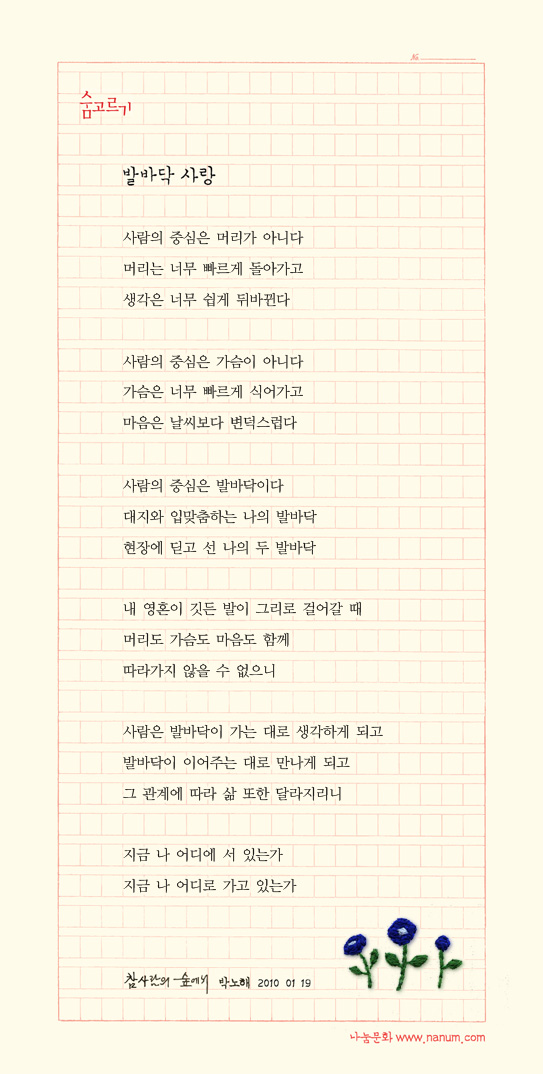 №
숨고르기
발바닥 사랑
사람의 중심은 머리가 아니다
머리는 너무 빠르게 돌아가고
생각은 너무 쉽게 뒤바뀐다
사람의 중심은 가슴이 아니다
가슴은 너무 빠르게 식어가고
마음은 날씨보다 변덕스럽다
사람의 중심은 발바닥이다
대지와 입맞춤하는 나의 발바닥
현장에 딛고 선 나의 두 발바닥
내 영혼이 깃든 발이 그리로 걸어갈 때
머리도 가슴도 마음도 함께
따라가지 않을 수 없으니
사람은 발바닥이 가는 대로 생각하게 되고
발바닥이 이어주는 대로 만나게 되고
그 관계에 따라 삶 또한 달라지리니
지금 나 어디에 서 있는가
지금 나 어디로 가고 있는가
참사람의 숲에서 박노해 2010 01 19
나눔문화 www.nanum.com